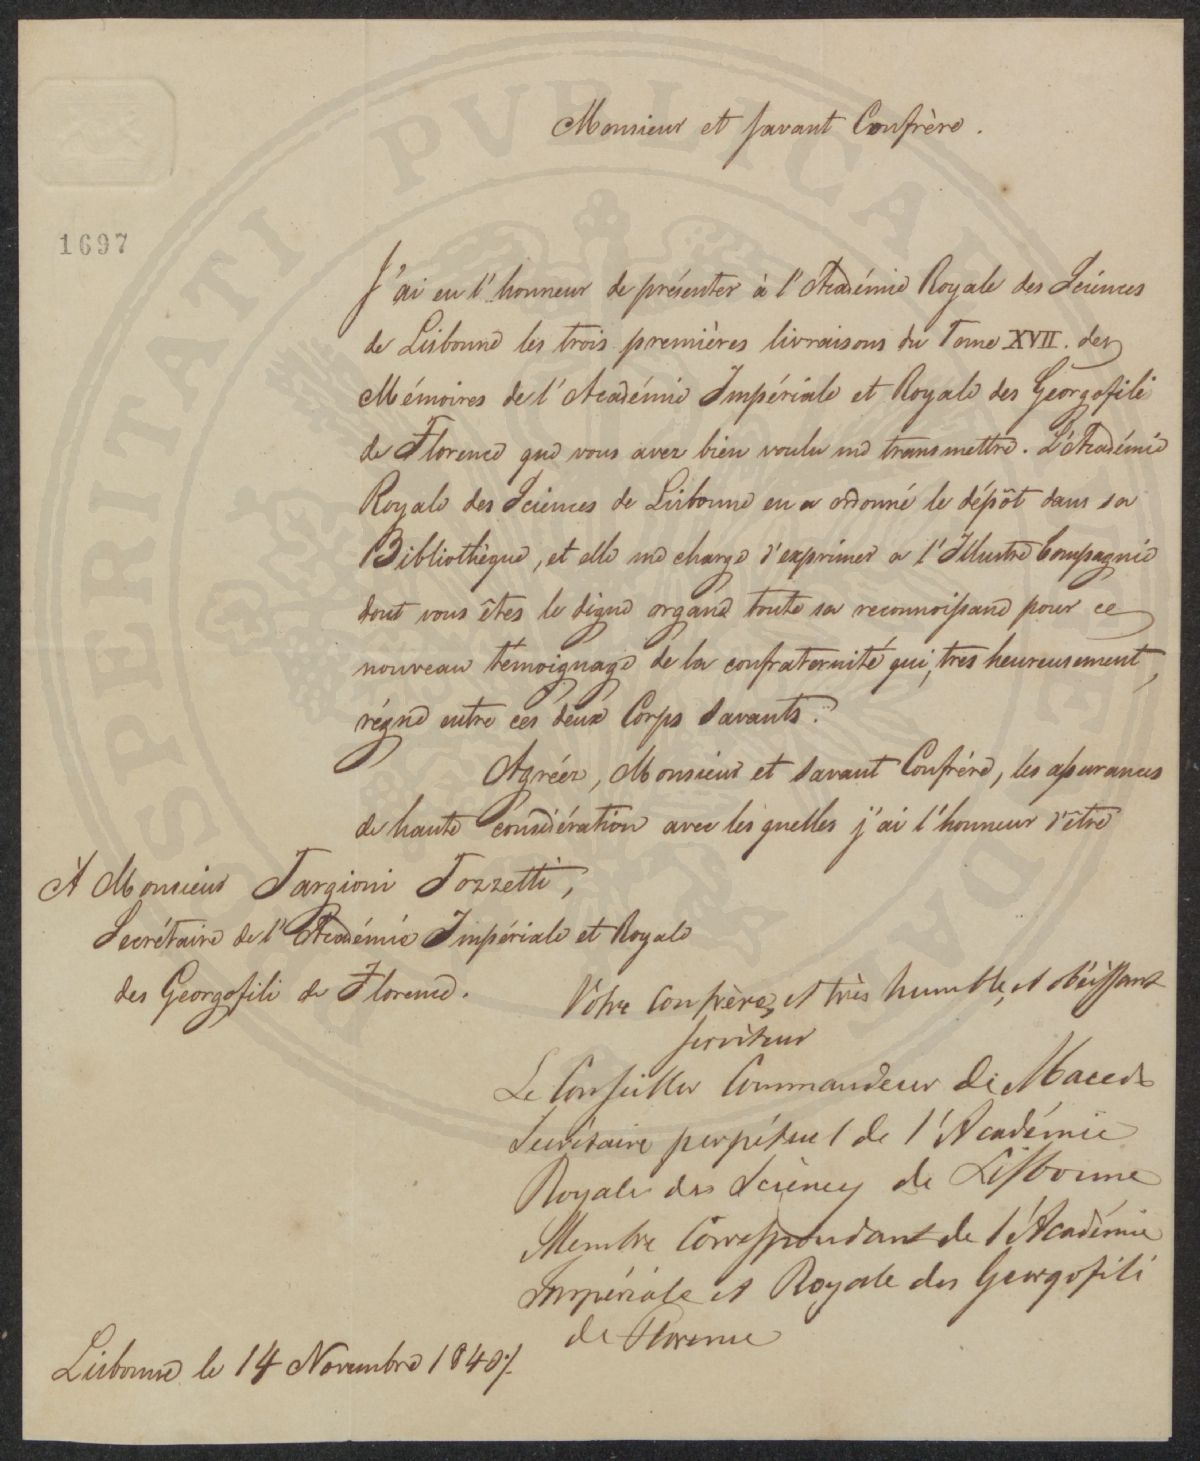 Monsieur et savant Confrère.
1697
J'ai eu l'honneur de présenter à l'Académie Royale des Sciences
de Lisbonne les trois premières livraisons du Tome XVII. des
Mémoires de l'Académie Impériale et Royale des Georgofili
de Florence que vous avez bien voulu me transmettre. L'Académie
Royale des Sciences de Lisbonne en a ordonné le dépôt dans sa
Bibliothèque, et elle me charge d'exprimer a l'Illustre Compagnie
dont vous êtes le digne organe toute sa reconnoissance pour ce
nouveau témoignage de la confraternité qui, tres heureusement,
régne entre ces deux Corps savants.
Agréez, Monsieur et savant Confrére, les assurances
de haute considération avec les quelles j'ai l'honneur d'être
À Monsieur Targioni Tozzetti,
Secrétaire de l'Académie Impériale et Royale
des Georgofili de Florence.
Votre Confrère, et très humble, et obéissant
serviteur
Le Conseiller Commandeur de Macedo
Secrétaire perpétuel de l'Académie
Royale des Sciences de Lisbonne
Membre Correspondant de l'Académie
Impériale et Royale des Georgofili
de Florence
Lisbonne le 14 Novembre 1840
PROSPERITATI PVBLICAE